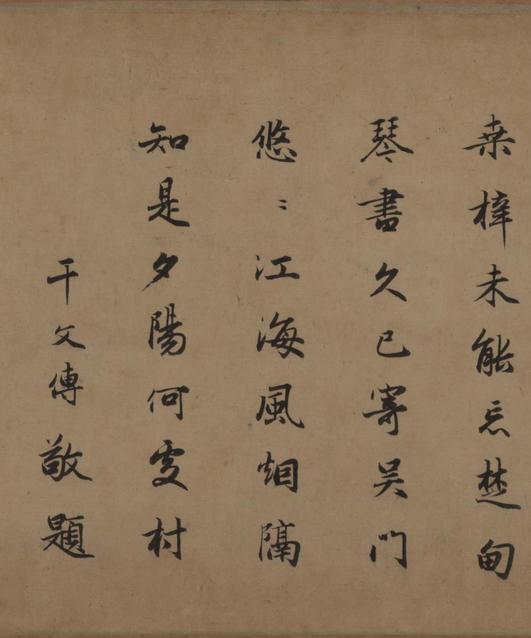 桒梓未能忘楚甸
琴書久已寄吴門
悠〻江海風烟隔
知是夕陽何䖏村
干文傳敬題